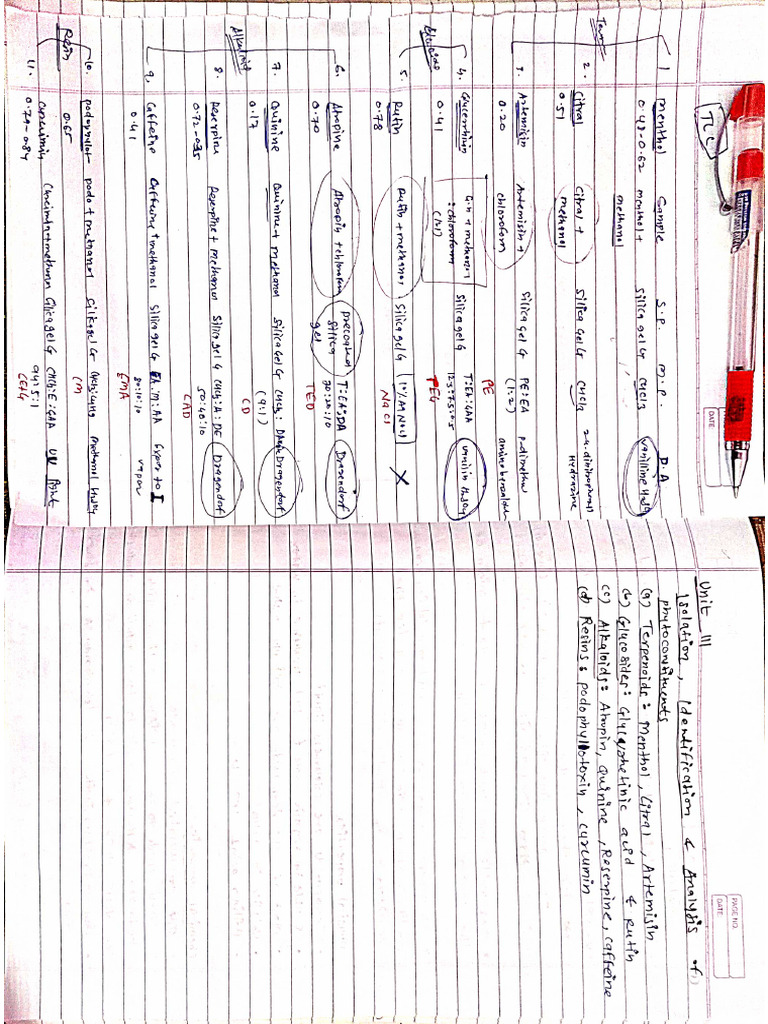 TLC
DATE
Sample S.P. M.P. D.A
Terp
1. Menthol menthol + Silica gel G CHCl3 vanilline H2SO4
0.48-0.62 methanol
2. Citral Citral + Silica Gel G CHCl3 2-4-dinitrophenyl
0.51 methanol Hydrazine
3. Artemisin Artemisin + Silica gel G PE:EA P-dimethyl
0.20 chloroform (1:2) amino benzaldeh
PE
4. Glycerrhizin Silica gel G T:EA:GAA vanillin H2SO4
0.41 : chloroform 12.5:7.5:0.5
(1:1) TEG
5. Rutin Rutin + methanol Silica gel G 10% AA NaCl X
0.78 NaCl
Alkaloid
6. Atropine Atropin + chloroform precoated T:EA:DA Dragendorf
0.70 Silica gel 70:20:10
TED
7. Quinine Quinine + methanol Silica Gel G Dragendorf
0.17 (9:1)
CD
8. Reserpine Reserpine + methanol Silica gel G CHCl3:A:DE Dragendorf
50:40:10
CAD
9. Caffeine Caffeine + methanol Silica gel G EA:M:AA Expose to I
0.41 80:10:10 vapour
EMA
Resin
10. podophyllot podo + methanol Silica gel G methanol H2SO4
0.65 CM
11. curcumin Silica gel G CHCl3:E:GAA UV light
0.79-0.84 94:5:1
CEG
PAGE NO.
DATE
Unit III
Isolation, Identification & Analysis of
phytoconstituents
(a) Terpenoids: Menthol, Citral, Artemisin
(b) Glucosides: Glycyrhetinic acid & Rutin
(c) Alkaloids: Atropin, Quinine, Reserpine, caffeine
(d) Resins: podophyllotoxin, curcumin